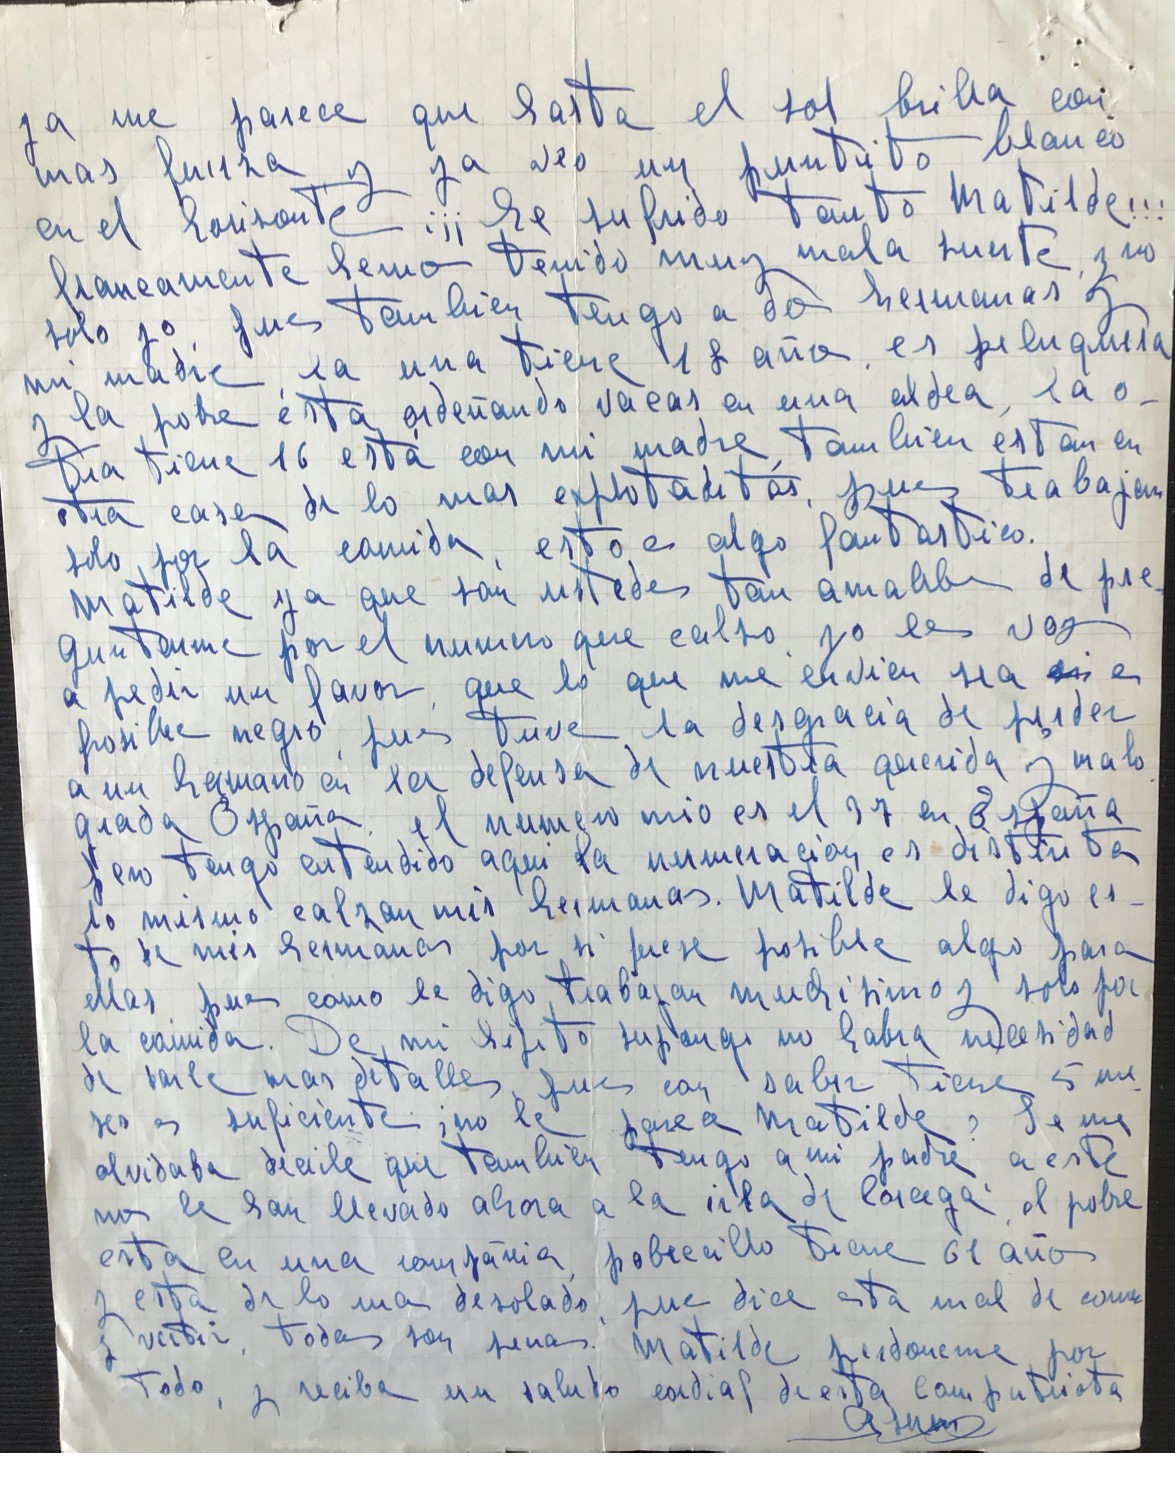 ya me parece que hasta el sol brilla con
mas fuerza y ya veo un puntito blanco
en el horisonte ¡¡¡ he sufrido tanto Matilde!!!
francamente hemos tenido muy mala suerte, y no
solo yo, pues tambien tengo a dos hermanas y
mi madre, la una tiene 18 años, es peluquera
y la pobre está ordeñando vacas en una aldea, la o-
tra tiene 16 está con mi madre, tambien estan en
otra casa de lo mas explotaditas, pues trabajan
solo por la comida, esto es algo fantastico.
Matilde ya que son ustedes tan amables de pre-
guntarme por el numero que calso, yo les voy
a pedir un favor, que lo que me envien sea es
posible negro, pues tuve la desgracia de perder
a un hermano en la defensa de nuestra querida y malo
grada España, el numero mio es el 37 en España
pero tengo entendido aqui la numeración es distinta
lo mismo calzan mis hermanas. Matilde le digo es-
to de mis hermanas por si fuese posible algo para
ellas pues como le digo trabajan muchisimo y solo por
la comida. De mi hijito supongo no habra necesidad
de darle mas detalles, pues con saber tiene 5 me-
ses es suficiente ¿no le parece Matilde? Se me
olvidaba decirle que tambien tengo a mi padre a este
nos le han llevado ahora a la isla de Corcega, el pobre
esta en una compañia, pobrecillo tiene 61 años
y esta de lo mas desolado, pues dice esta mal de comer
y vestir, todas son penas. Matilde perdoneme por
todo, y reciba un saludo cordial de esta compatriota